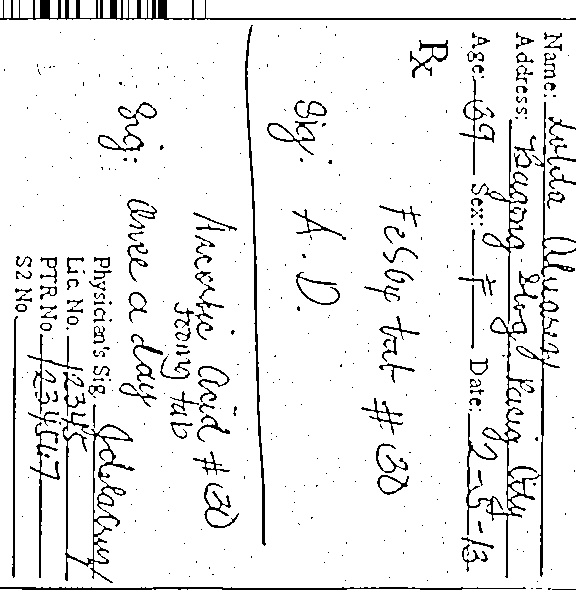 Name: Lolita Alvarez
Address: Bagong Ilog Pasig City
Age: 69 Sex: F Date: 2-5-13
Rx
FeSO4 tab #30
Sig: A.D.
Ascorbic Acid #30
500mg tab
Sig: once a day
Physician's Sig. Jdelacruz
Lic. No. 12345
PTR No. 1234567
S2 No.